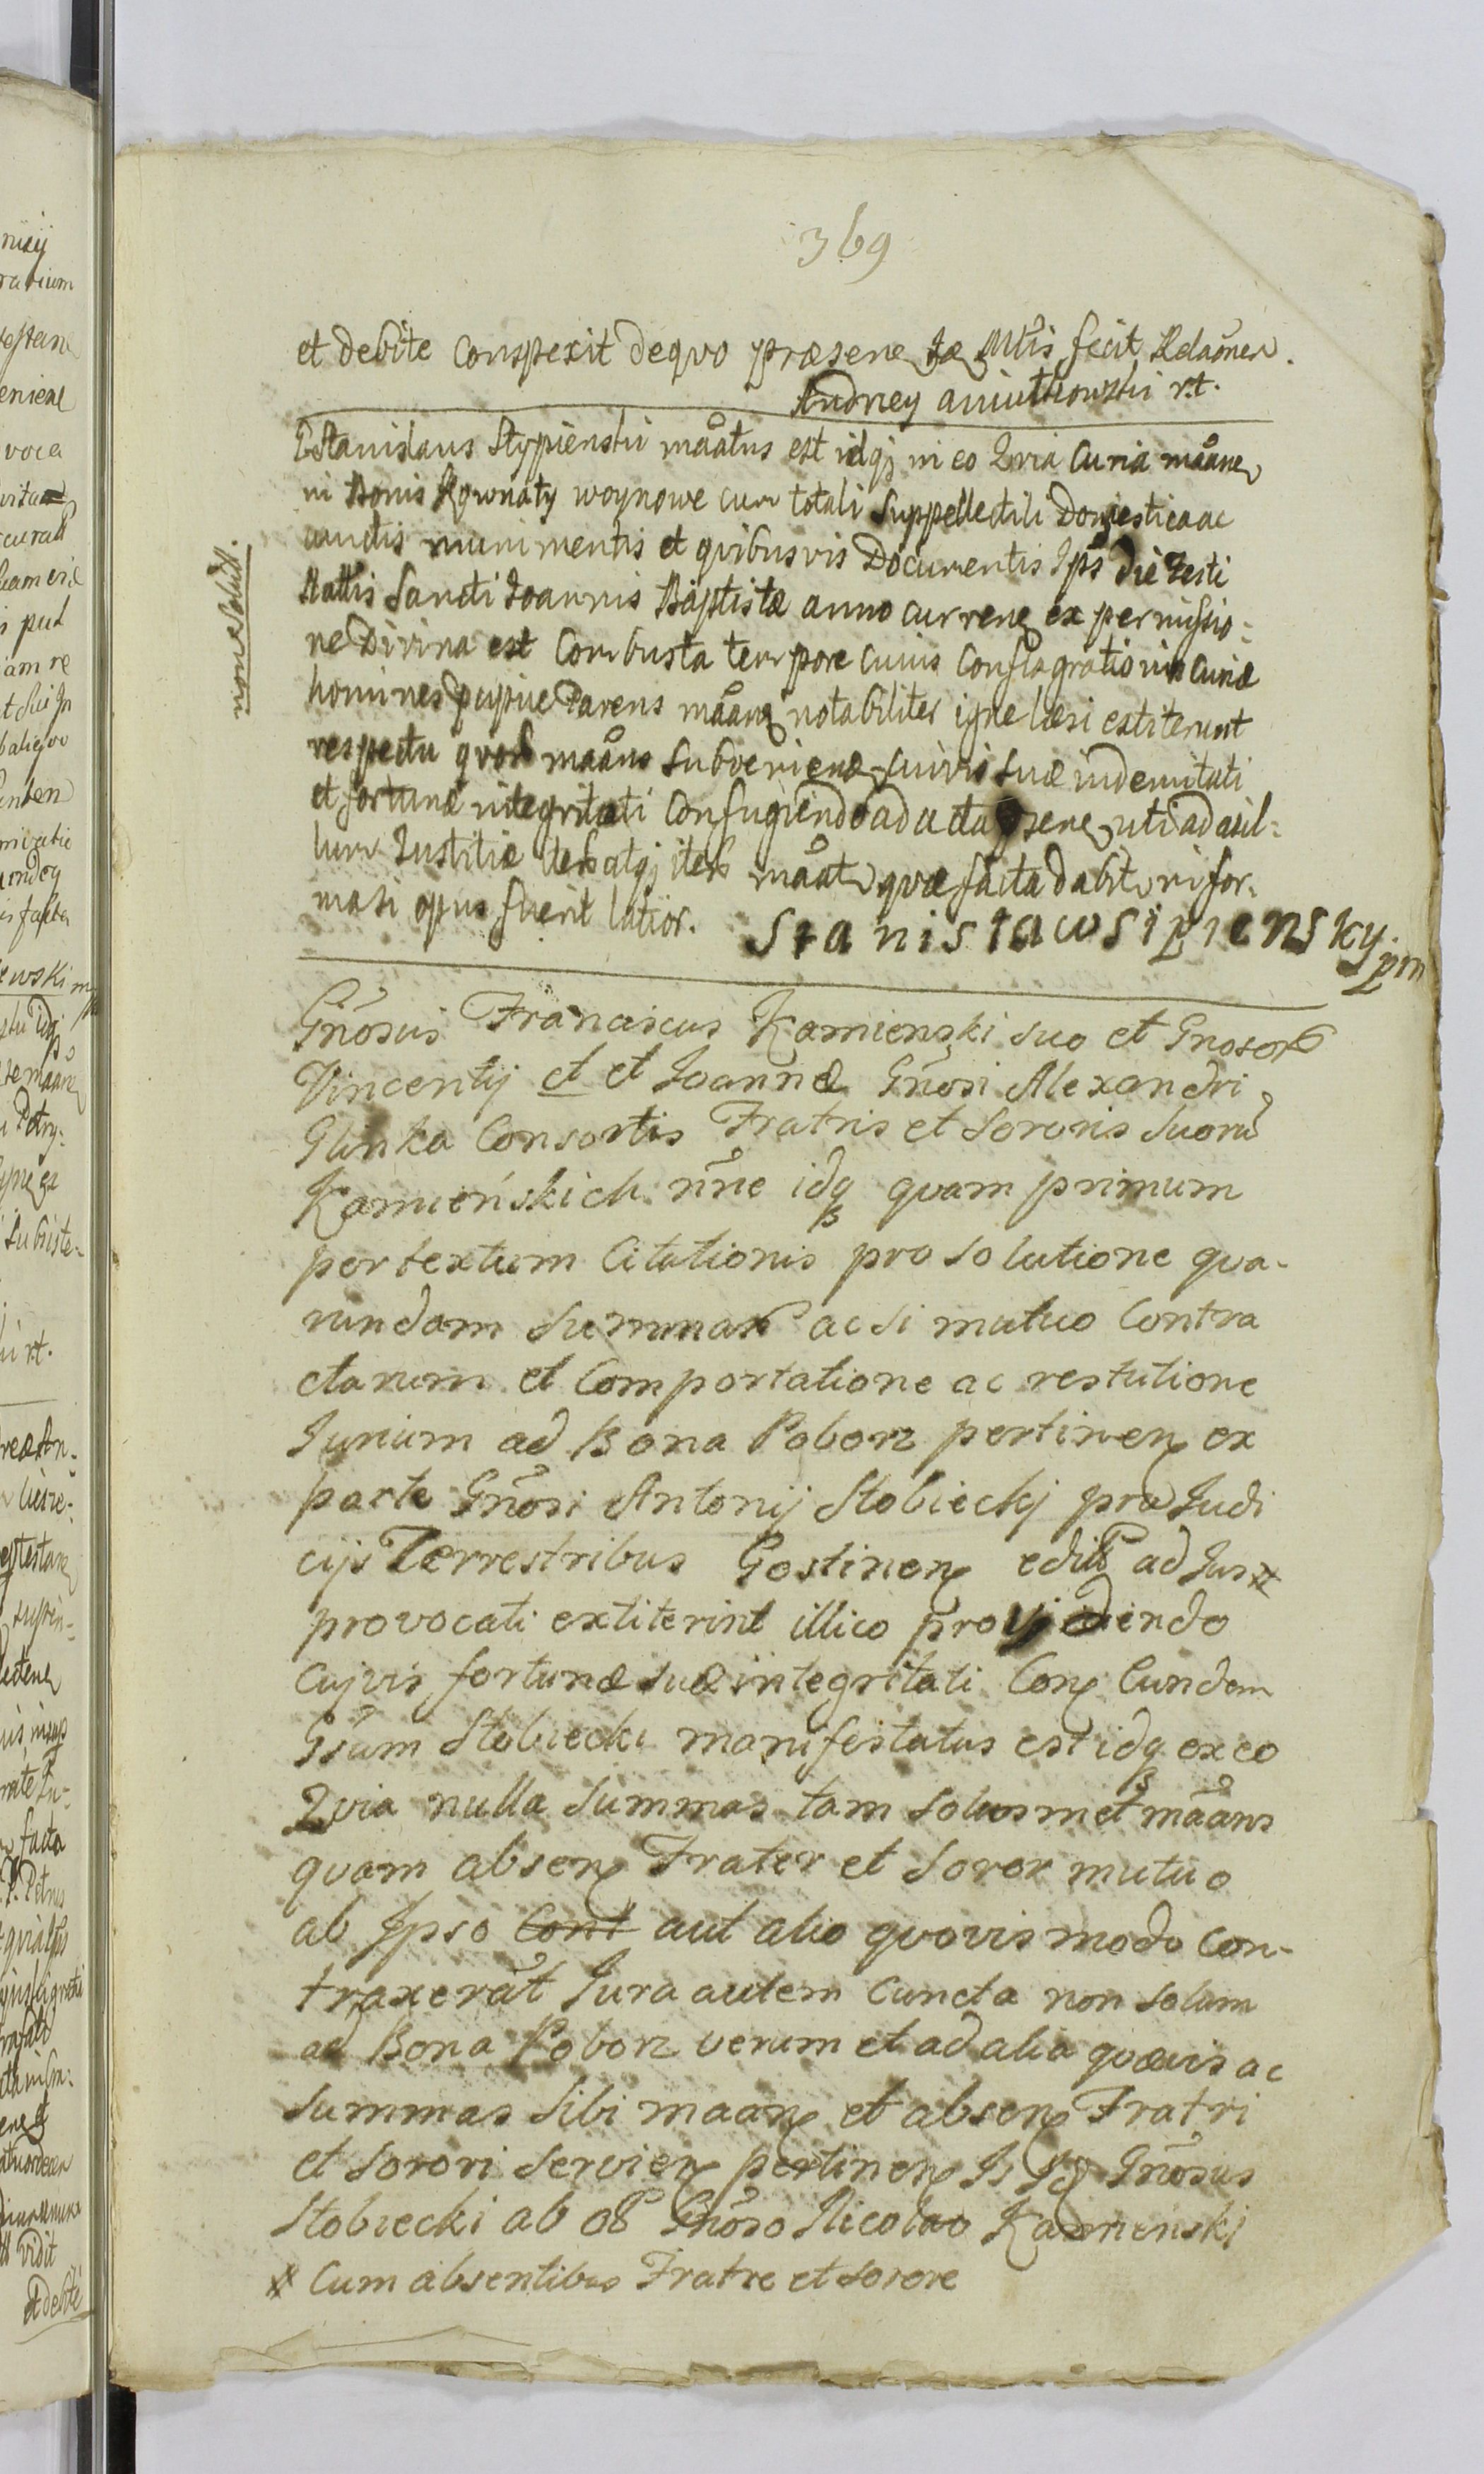 369
et debite conspexit de quo præsene fæ Mtis fecit Relãonen.
Andrey r.t.
Stanislaus Stypienski mãatus est idqꝫ in eo Qvia Curia mãane
in Bonis Rownaty woynowe cum totali Suppellectili Domestica ac
cunctis munimentis et qvibusvis Documentis Ips̃ die Festi
Nattis Sancti Joannis Baptistæ anno currene ex permissio=
ne Divina est Combusta tempore cuius Conflagrationis Curiæ
homines parens mãane notabiliter igne læsi extiterunt
respectu qvor mãans Subveniene cuivis suæ indemnitati
et fortunæ integritati Confugiendo ad acta psene uti ad asil=
lum Justitiæ iter atqꝫ iter mãat qvæ facta dabit ni for-
mari opus fuerit latior. Stanisław Sipiensky pm
non e solut.
Gñosus Franciscus Kamienski suo et Gnosor
Vincentij et et Joannæ Gñosi Alexandri
Glinka Consortis Fratris et Sororis Suorũ
Kamieńskich ñne idqꝫ quam primum
per textum Citationis pro solutione qua-
rundam Summar ac si mutuo Contra
ctarum et Comportatione ac restutione
Jurium ad Bona Poborz pertinen ex
parte Gñosi Antonij Stobieckj pro Judi
cijs Terrestribus Gostinen edit ad Jus #
provocati extiterint illico providendo
Cujvis fortunæ suæ integritati Con Eundem
Gsũm Stobiecki manifestatus est idqꝫ ex eo
Qvia nulla Summas tam solusmet mãans
quam absen Frater et Soror mutuo
ab Ipso Cont aut alio quovis modo con-
traxerãt Jura autem Cuncta non solum
ad Bona Poborz verum et ad alia quævis ac
Summas Sibi maan et absen Fratri
et Sorori Servien pertinen Gñosus
Stobiecki ab ol Gñoso Nicolao Kamienskj
# Cum absentibus Fratre et Sorore